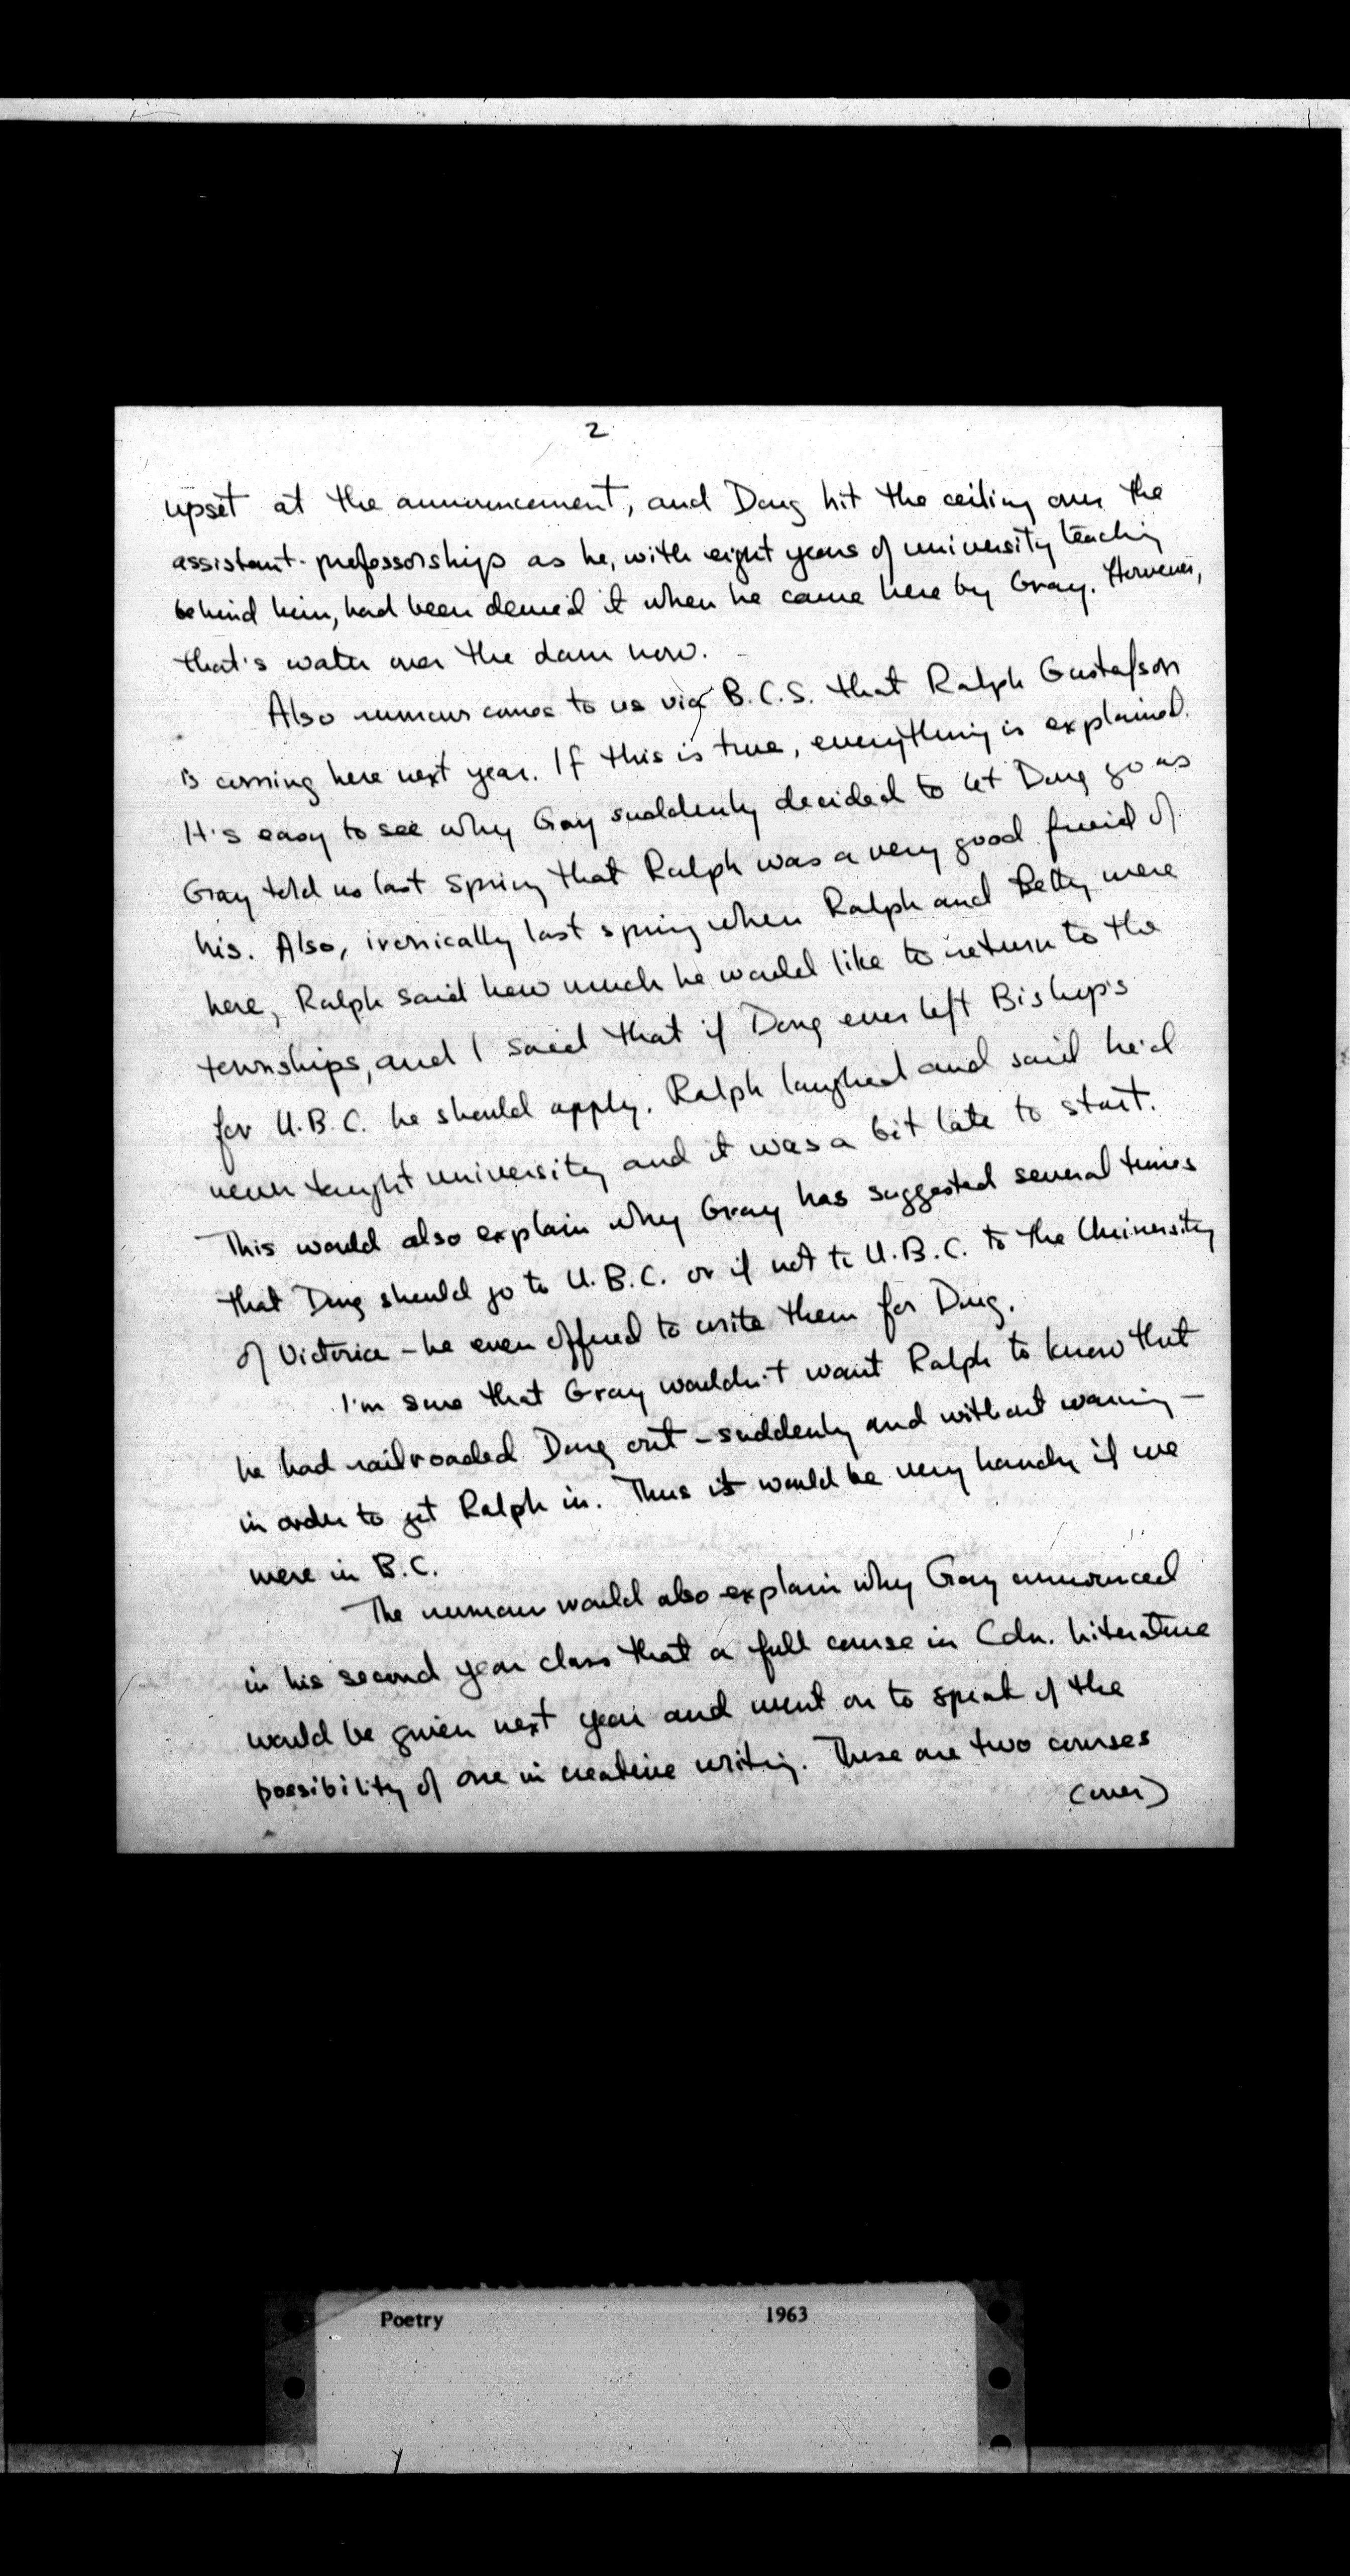 2
upset at the announcement, and Doug hit the ceiling over the
assistant-professorships as he, with eight years of university teaching
behind him, had been denied it when he came here by Gray. However,
that's water over the dam now.
Also rumour comes to us via B.C.S. that Ralph Gustafson
is coming here next year. If this is true, everything is explained.
It's easy to see why Gray suddenly decided to let Doug go as
Gray told us last spring that Ralph was a very good friend of
his. Also, ironically last spring when Ralph and Betty were
here, Ralph said how much he would like to return to the
townships, and I said that if Doug ever left Bishop's
for U.B.C. he should apply. Ralph laughed and said he'd
never taught university and it was a bit late to start.
This would also explain why Gray has suggested several times
that Doug should go to U.B.C. or if not to U.B.C. to the University
of Victoria - he even offered to write them for Doug.
I'm sure that Gray wouldn't want Ralph to know that
he had railroaded Doug out - suddenly and without warning -
in order to get Ralph in. Thus it would be very handy if we
were in B.C.
The rumour would also explain why Gray announced
in his second year class that a full course in Cdn. Literature
would be given next year and went on to speak of the
possibility of one in creative writing. These are two courses
(over)
Poetry 1963